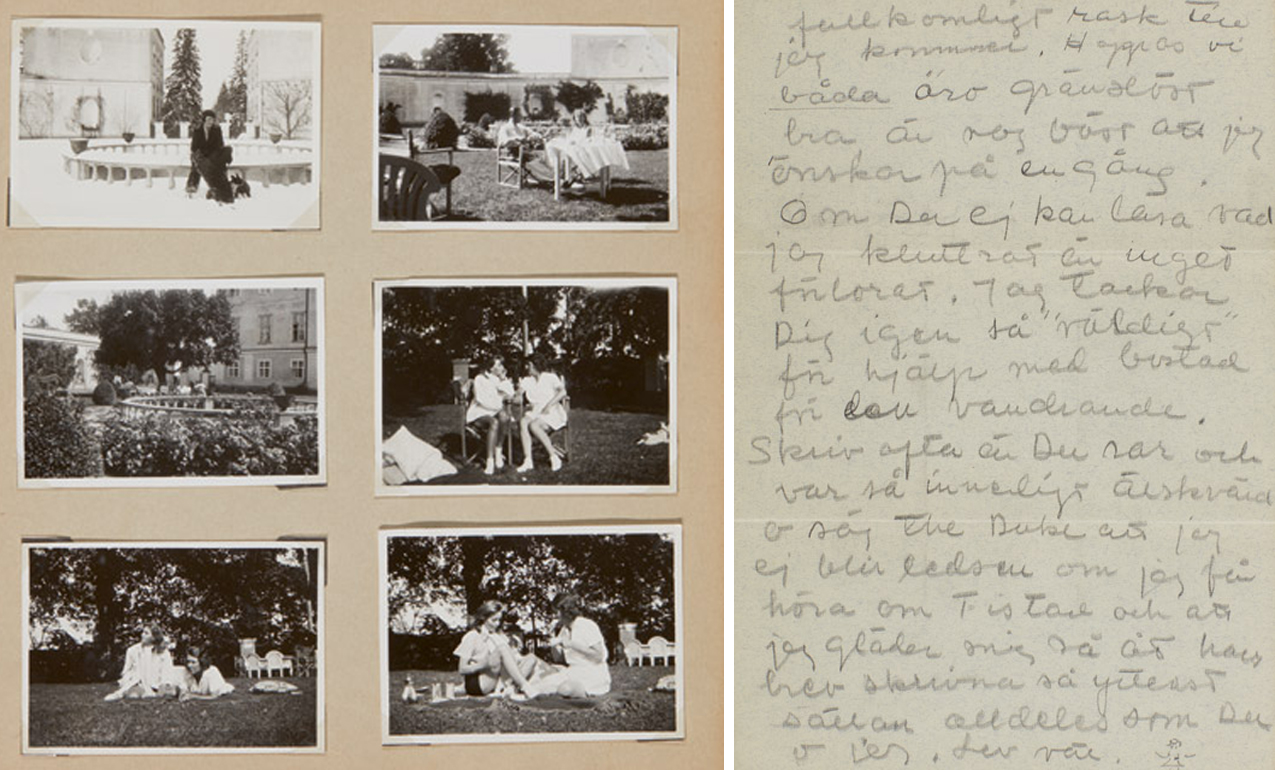 fullkomligt rask till
jag kommer. Hoppas vi
båda äro gränslöst
bra är nog bäst att jag
önskar på en gång.
Om Du ej kan läsa vad
jag kluttrat är inget
förlorat. Jag tackar
Dig igen så "väldigt"
för hjälp med bostad
för den vandrande.
Skriv ofta är Du rar och
var så innerligt älskvärd
o säg the Duke att jag
ej blir ledsen om jag får
höra om Tistad och att
jag gläder mig så åt hans
brev skrivna så ytterst
sällan alldeles som Du
o jag. Lev väl.